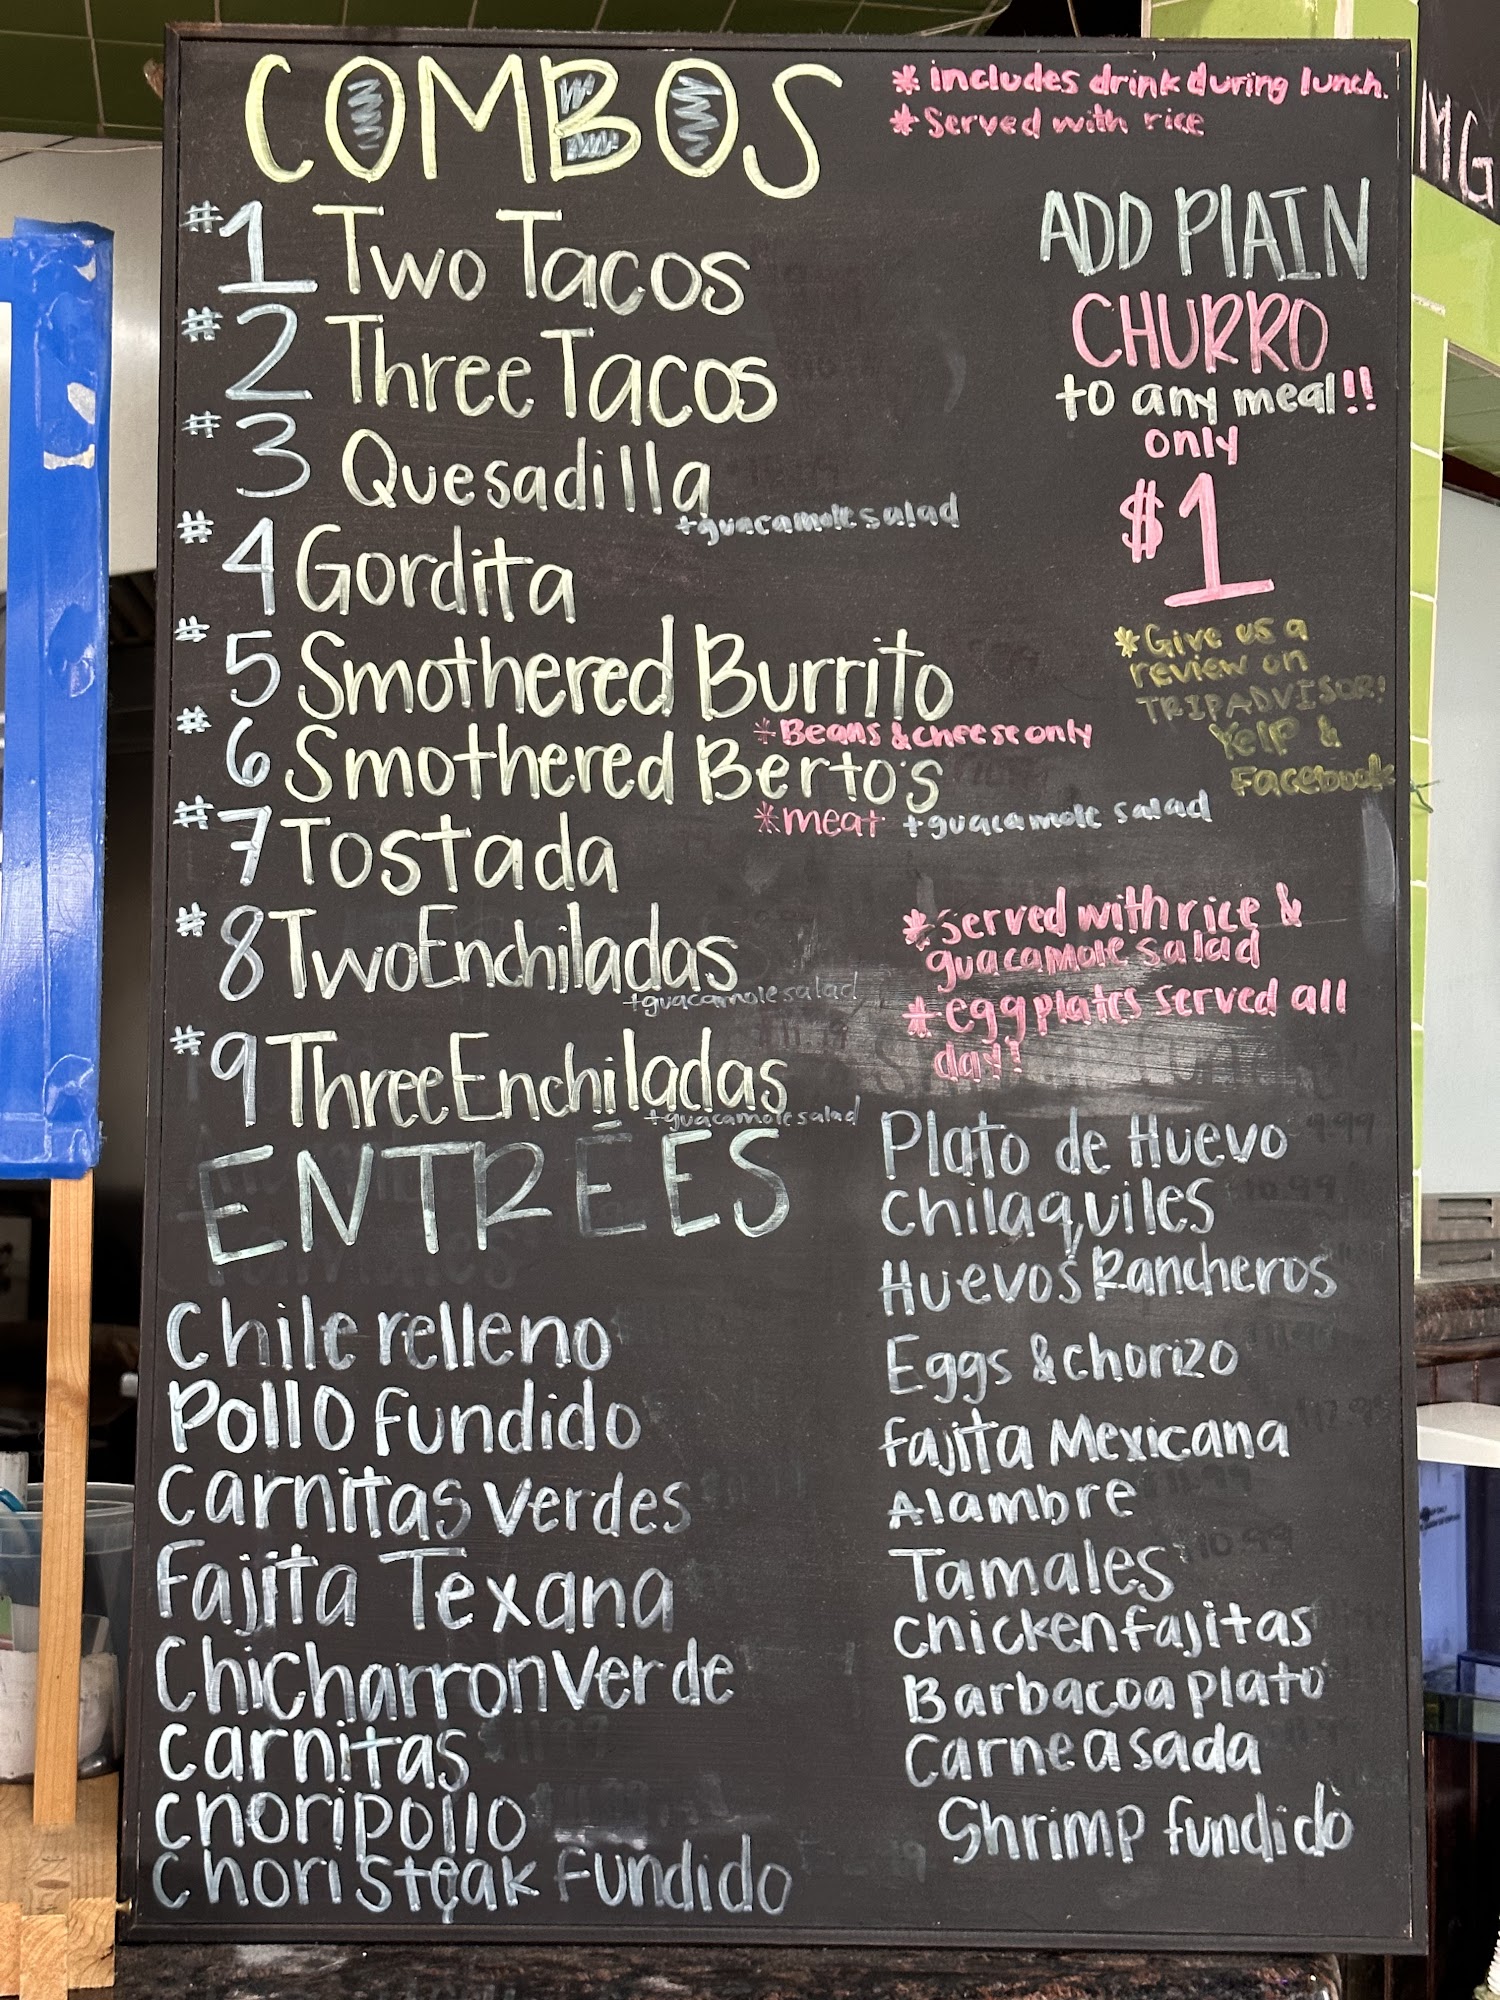 COMBOS
* includes drink during lunch.
* Served with rice
#1 Two Tacos
#2 Three Tacos
#3 Quesadilla
+guacamole salad
#4 Gordita
#5 Smothered Burrito
* Beans & cheese only
#6 Smothered Berto's
* meat + guacamole salad
#7 Tostada
#8 Two Enchiladas
+guacamole salad
#9 Three Enchiladas
+guacamole salad
ADD PLAIN
CHURRO
to any meal!!
only
$1
* Give us a
review on
TRIPADVISOR!
Yelp &
Facebook
* Served with rice &
guacamole salad
* egg plates served all
day!
ENTRÉES
Chile relleno
Pollo Fundido
Carnitas Verdes
Fajita Texana
Chicharron Verde
Carnitas
Choripollo
Chori Steak Fundido
Plato de Huevo
Chilaquiles
Huevos Rancheros
Eggs & chorizo
Fajita Mexicana
Alambre
Tamales
Chicken fajitas
Barbacoa plato
Carne asada
Shrimp fundido
MG